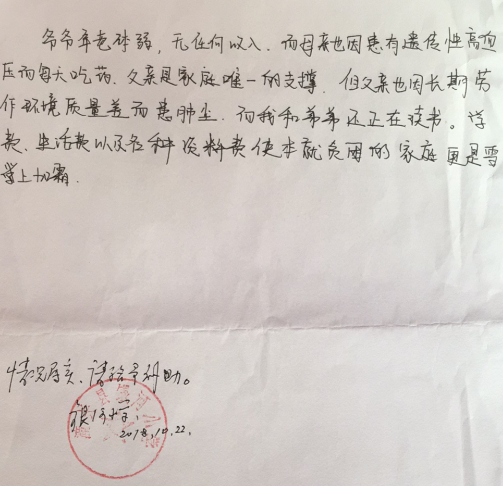 爷爷年老体弱，无任何收入、而母亲也因患有遗传性高血
压而每天吃药、父亲是家庭唯一的支撑，但父亲也因长期劳
作环境质量差而患肺尘、而我和弟弟还正在读书。学
费、生活费以及各种资料费使本就贫困的家庭更是雪
上加霜.
情况属实、请给予补助。
2018.10.22.